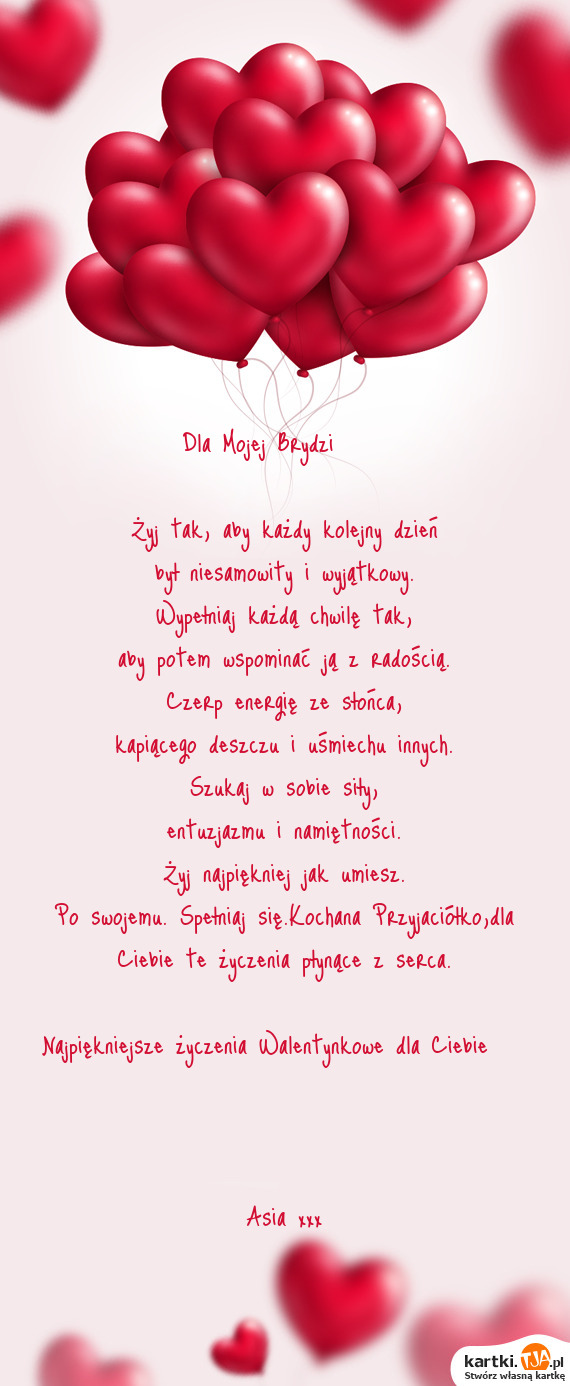 Dla Mojej Brydzi
Żyj tak, aby każdy kolejny dzień
był niesamowity i wyjątkowy.
Wypełniaj każdą chwilę tak,
aby potem wspominać ją z radością.
Czerp energię ze słońca,
kapiącego deszczu i uśmiechu innych.
Szukaj w sobie siły,
entuzjazmu i namiętności.
Żyj najpiękniej jak umiesz.
Po swojemu. Spełniaj się.Kochana Przyjaciółko,dla
Ciebie te życzenia płynące z serca.
Najpiękniejsze życzenia Walentynkowe dla Ciebie
Asia xxx
kartki.TJA.pl
Stwórz własną kartkę